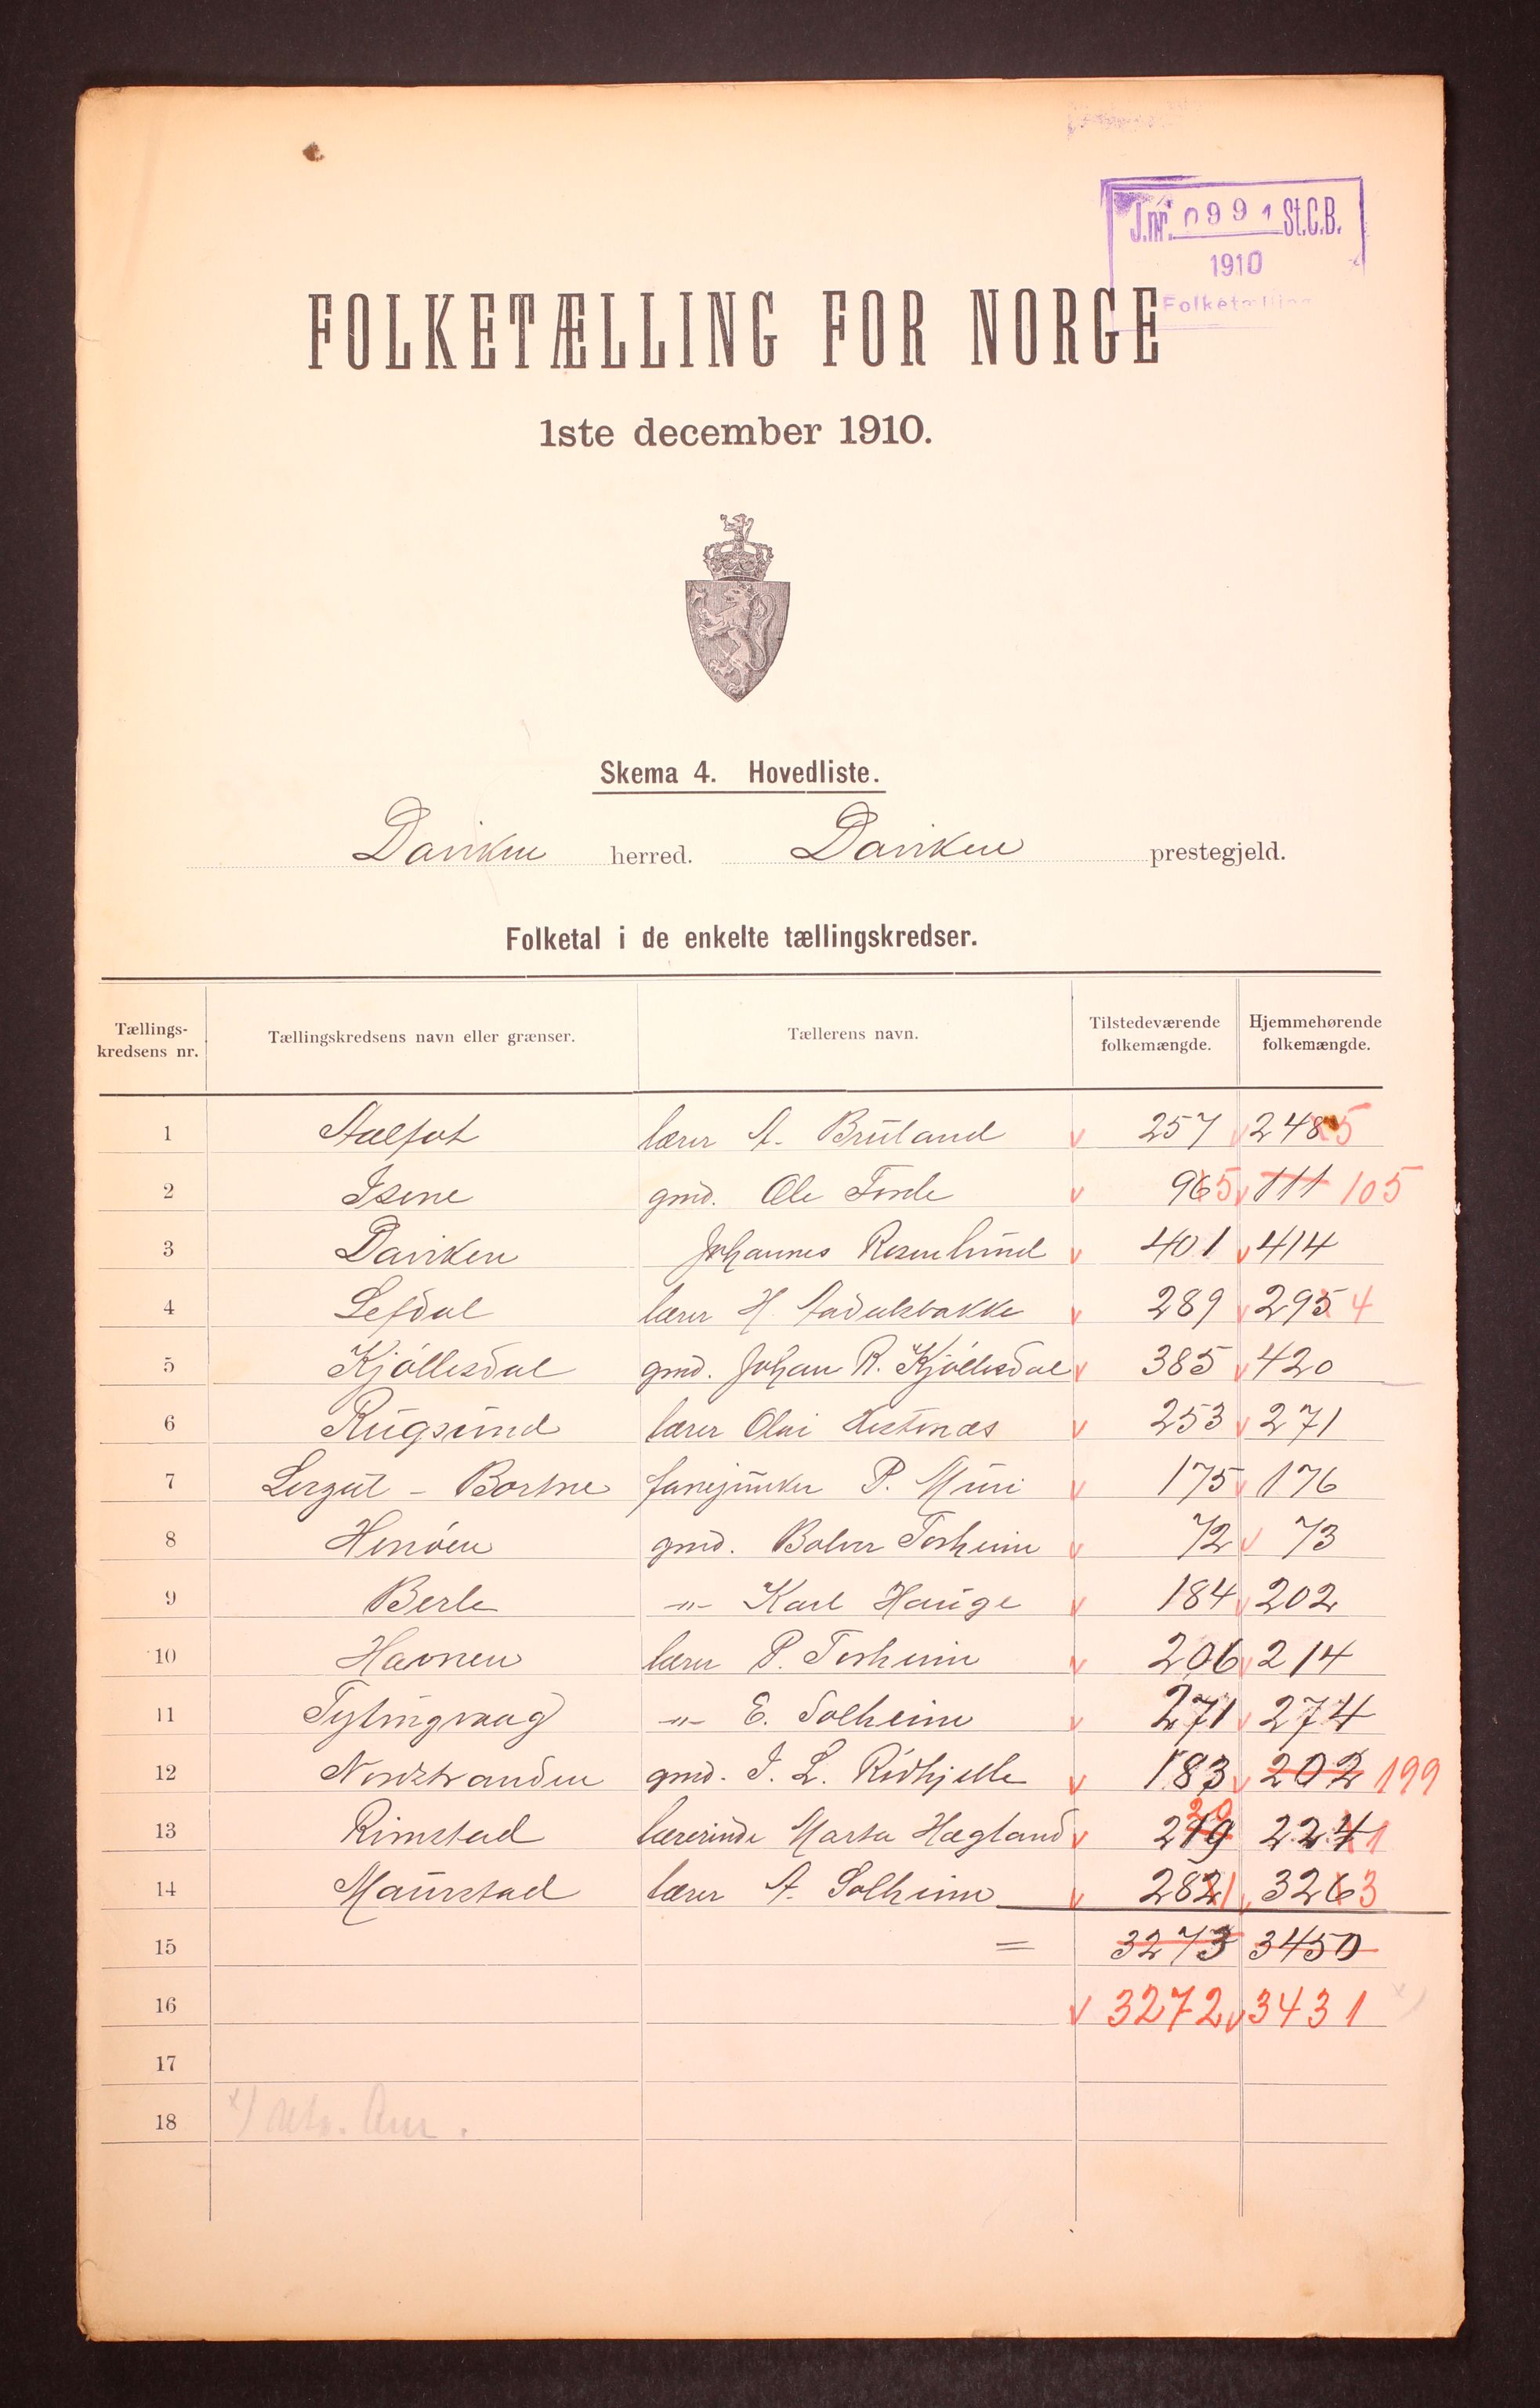 J.nr. 0991 St.C.B.
1910
Folketælling
FOLKETÆLLING FOR NORGE
1ste december 1910.
Skema 4. Hovedliste.
Daviken herred. Daviken prestegjeld.
Folketal i de enkelte tællingskredser.
Tællings-kredsens nr. Tællingskredsens navn eller grænser. Tællerens navn. Tilstedeværende folkemængde. Hjemmehørende folkemængde.
1 Aalfot lærer A. Bruland v 257 v 248 5
2 Isene gmd. Ole Förde v 96 5 v 111 105
3 Daviken Johannes Rosenlund v 401 v 414
4 Lefdal lærer H. v 289 v 295 4
5 Kjöllesdal gmd. Johan R. Kjöllesdal v 385 v 420
6 Rugsund lærer Olai Hestenæs v 253 v 271
7 Lergul - Bortne fanejunker P. Muri v 175 v 176
8 Henöen gmd. Torheim v 72 v 73
9 Berle -"- Karl Hauge v 184 v 202
10 Havnen lærer P. Torheim v 206 v 214
11 Tytingvaag -"- E. Solheim v 271 v 274
12 Nordstranden gmd. I. L. v 183 v 202 199
13 Rimstad lærerinde Marta Hægland v 219 20 224 1
14 Maurstad lærer A. Solheim v 282 1 v 326 3
15 = 3273 3450
16 v 3272 v 3431 x)
17
18 x)